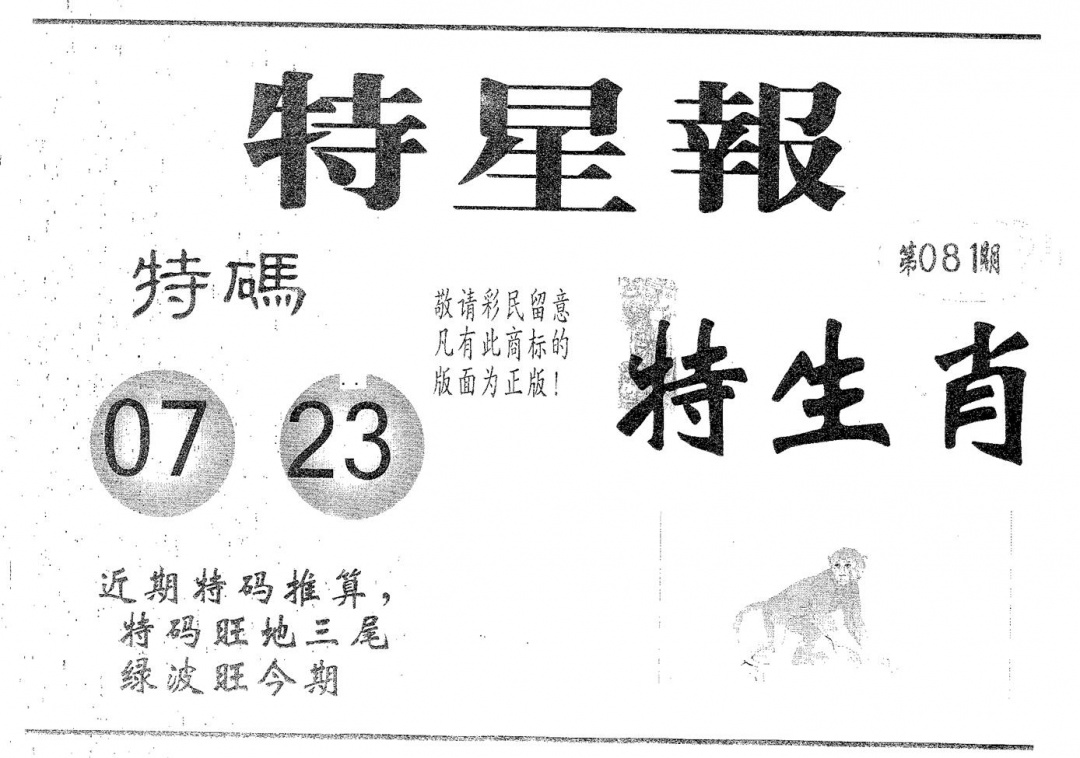 特星報
第081期
特碼
敬请彩民留意
凡有此商标的
版面为正版!
特生肖
07 23
近期特码推算,
特码旺地三尾
绿波旺今期